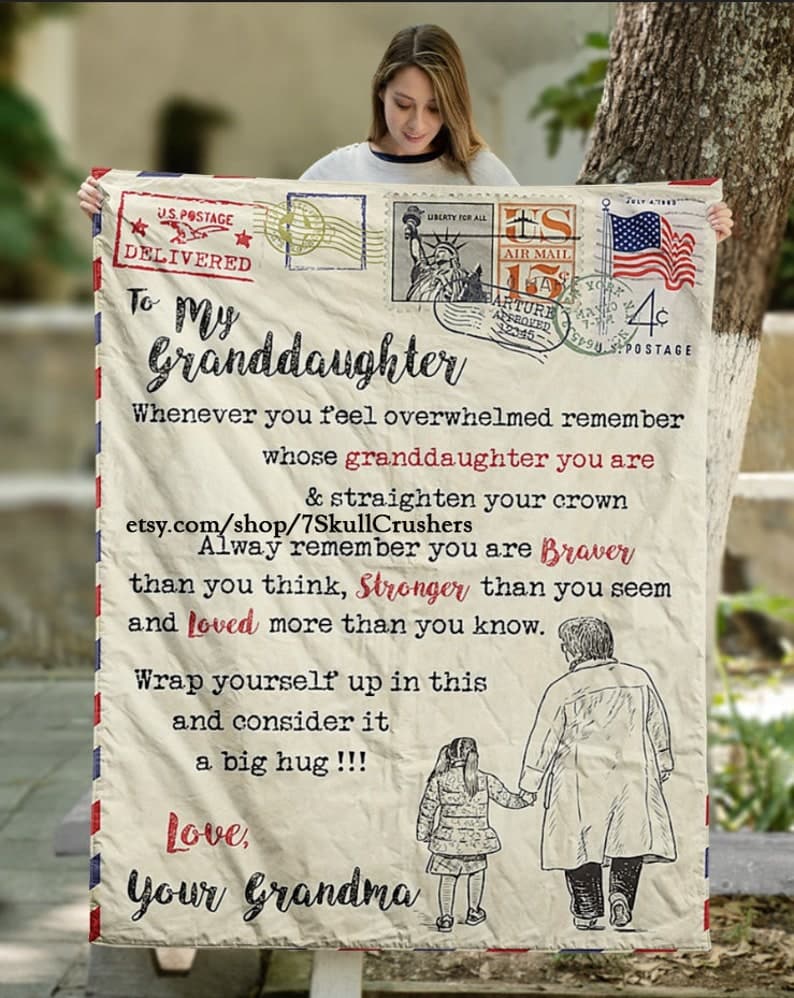 U.S. POSTAGE
DELIVERED
LIBERTY FOR ALL
US
AIR MAIL
15¢
JULY 4, 1960
4¢
U.S. POSTAGE
APPROVED
12345
To My
Granddaughter
Whenever you feel overwhelmed remember
whose granddaughter you are
& straighten your crown
etsy.com/shop/7SkullCrushers
Alway remember you are Braver
than you think, Stronger than you seem
and Loved more than you know.
Wrap yourself up in this
and consider it
a big hug !!!
Love,
Your Grandma